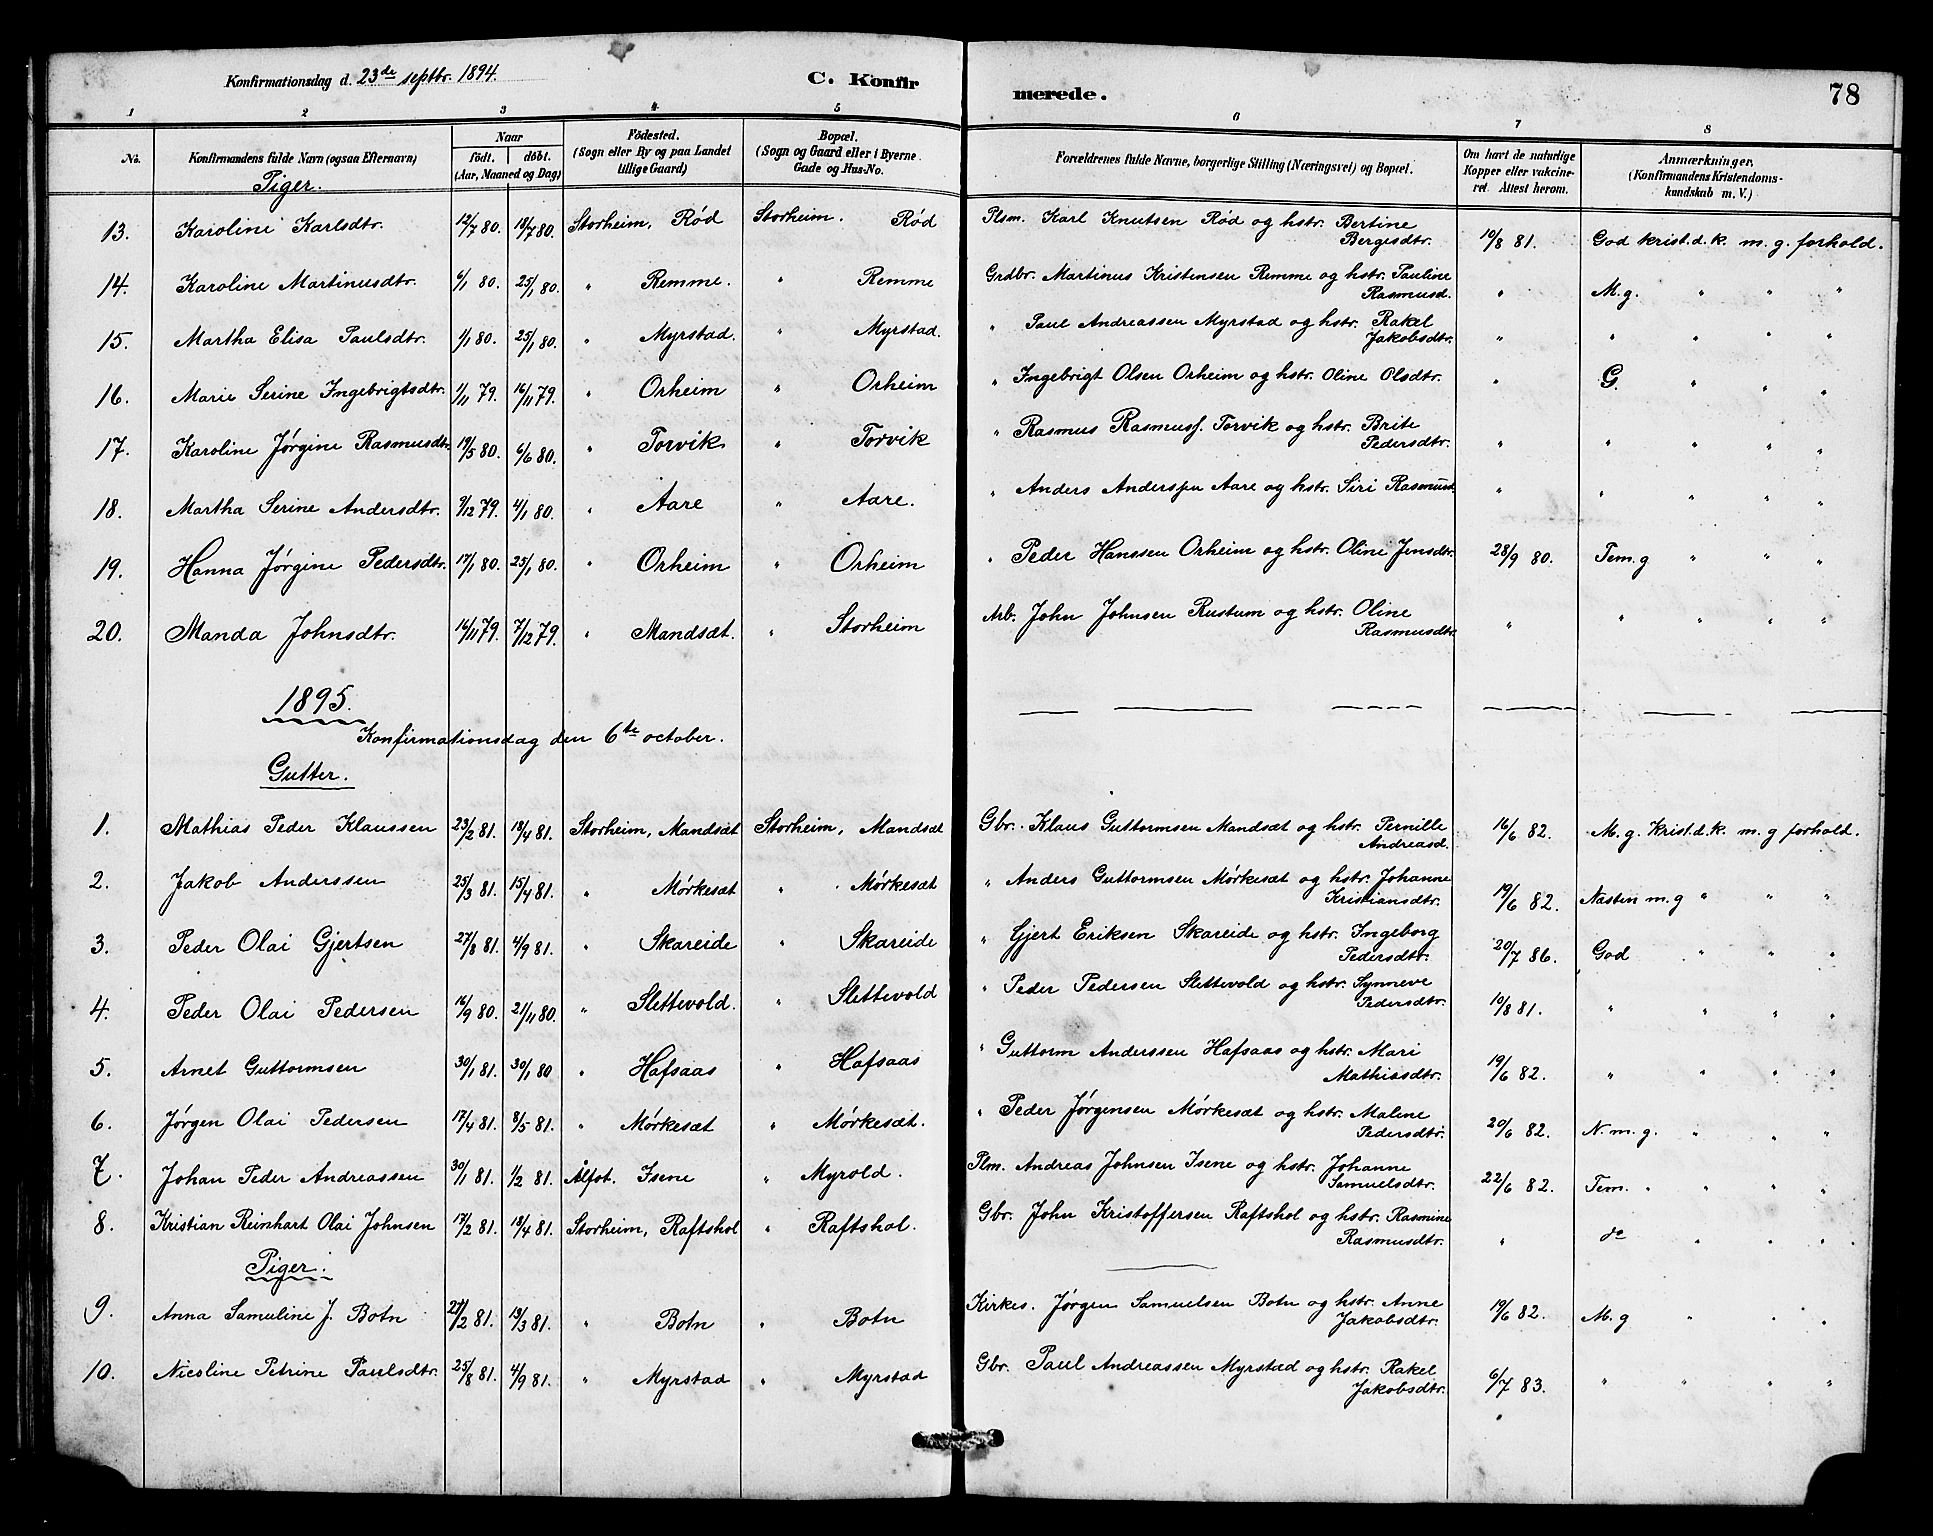 Konfirmationsdag d. 23de septbr. 1894. C. Konfir merede. 78
1 2 3 4 5 6 7 8
No. Konfirmandens fulde Navn (ogsaa Efternavn) Naar födt. döbt. (Aar, Maaned og Dag) Födested. (Sogn eller By og paa Landet tillige Gaard) Bopæl. (Sogn og Gaard eller i Byerne Gade og Hus-No. Forældrenes fulde Navne, borgerlige Stilling (Næringsvei) og Bopæl. Om havt de naturlige Kopper eller vakcineret. Attest herom. Anmærkninger. (Konfirmandens Kristendomskundskab m. V.)
Piger.
13. Karolini Karlsdtr. 12/7 80. 18/7 80. Storheim, Rød Storheim. Rød Plsm. Karl Knutsen Rød og hstr. Bertine Bergesdtr. 10/8 81. God krist.d.k. m. g. forhold.
14. Karoline Martinusdtr. 6/1 80. 25/1 80. " Remme. " Remme Grdbr. Martinus Kristensen Remme og hstr. Pauline Rasmusd. " M.g. " " "
15. Martha Elisa Paulsdtr. 1/1 80. 25/1 80. " Myrstad. " Myrstad. " Paul Andreassen Myrstad og hstr. Rakel Jakobsdtr. " " " " "
16. Marie Serine Ingebrigtsdtr. 1/11 79. 16/11 79. " Orheim " Orheim " Ingebrigt Olsen Orheim og hstr. Oline Olsdtr. " G. " " "
17. Karoline Jørgine Rasmusdtr. 19/5 80. 6/6 80. " Torvik " Torvik " Rasmus Rasmuss. Torvik og hstr. Brite Pedersdtr. " " " " "
18. Martha Serine Andersdtr. 9/12 79. 4/1 80. " Aare " Aare. " Anders Anderssen Aare og hstr. Siri Rasmusd. " " " " "
19. Hanna Jørgine Pedersdtr. 17/1 80. 25/1 80. " Orheim " Orheim " Peder Hanssen Orheim og hstr. Oline Jensdtr. 28/9 80. Tem.g " " "
20. Manda Johnsdtr. 16/11 79. 7/12 79. " Mandsæt. " Storheim Arb. John Johnsen Rustum og hstr. Oline Rasmusdtr. " " " " "
1895.
Konfirmationsdag den 6te october.
Gutter.
1. Mathias Peder Klaussen 23/2 81. 18/4 81. Storheim, Mandsæt Storheim, Mandsæt Gbr. Klaus Guttormsen Mandsæt og hstr. Pernille Andreasd. 16/6 82. M. g. Krist.d.k. m. g forhold.
2. Jakob Anderssen 25/3 81. 15/4 81. " Mørkesæt " Mørkesæt " Anders Guttormsen Mørkesæt og hstr. Johanne Kristiansdtr. 19/6 82. Næsten m.g " " "
3. Peder Olai Gjertsen 27/8 81. 4/9 81. " Skareide " Skareide " Gjert Eriksen Skareide og hstr. Ingeborg Pedersdtr. 20/7 86. God " " "
4. Peder Olai Pedersen 16/9 80. 21/11 80. " Slettevold. " Slettevold " Peder Pedersen Slettevold og hstr. Synneve Pedersdtr. 10/8 81. " " " "
5. Arnet Guttormsen 30/1 81. 30/1 80 " Hafsaas " Hafsaas " Guttorm Anderssen Hafsaas og hstr. Mari Mathiasdtr. 19/6 82. " " " "
6. Jørgen Olai Pedersen 17/4 81. 8/5 81. " Mørkesæt " Mørkesæt. " Peder Jørgensen Mørkesæt og hstr. Malene Pedersdtr. 20/6 82. N. m. g. " " "
7. Johan Peder Andreassen 30/1 81. 1/2 81. Ålfot. Isene " Myrold. Plm. Andreas Johnsen Isene og hstr. Johanne Samuelsdtr. 22/6 82. Tem. " " " "
8. Kristian Reinhart Olai Johnsen 17/2 81. 18/4 81. Storheim, Raftshol " Raftshol. Gbr. John Kristoffersen Raftshol og hstr. Rasmine Rasmusdtr. " do " " "
Piger.
9. Anna Samuline J. Botn 27/2 81. 13/3 81. " Botn " Botn Kirkes. Jørgen Samuelsen Botn og hstr. Anne Jakobsdtr. 19/6 82. M. g " " "
10. Nicoline Petrine Paulsdtr. 25/8 81. 4/9 81. " Myrstad " Myrstad Gbr. Paul Andreassen Myrstad og hstr. Rakel Jakobsdtr. 6/7 83. " " " "